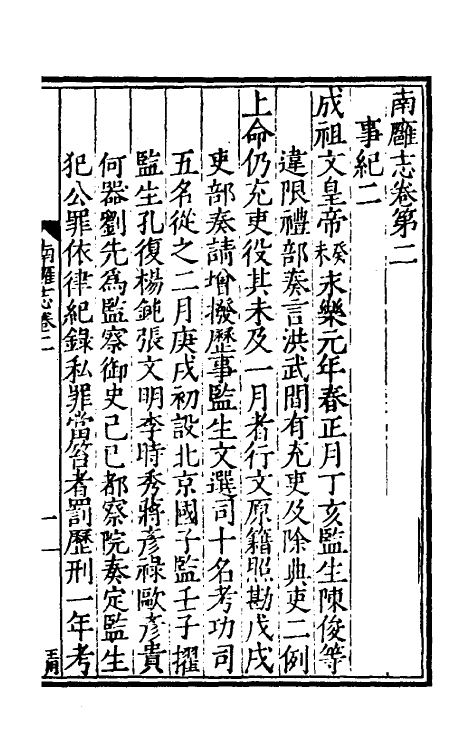 南廱志卷第二
事紀二
成祖文皇帝癸未永樂元年春正月丁亥監生陳俊等
違限禮部奏言洪武間有充吏及除典吏二例
上命仍充吏役其未及一月者行文原籍照勘戊戌
吏部奏請增撥歷事監生文選司十名考功司
五名從之二月庚戌初設北京國子監壬子擢
監生孔復楊鈍張文明李時秀蔣彥祿歐彥貴
何器劉先爲監察御史己巳都察院奏定監生
犯公罪依律紀錄私罪當笞者罰歷刑一年考
南廱志卷二
一